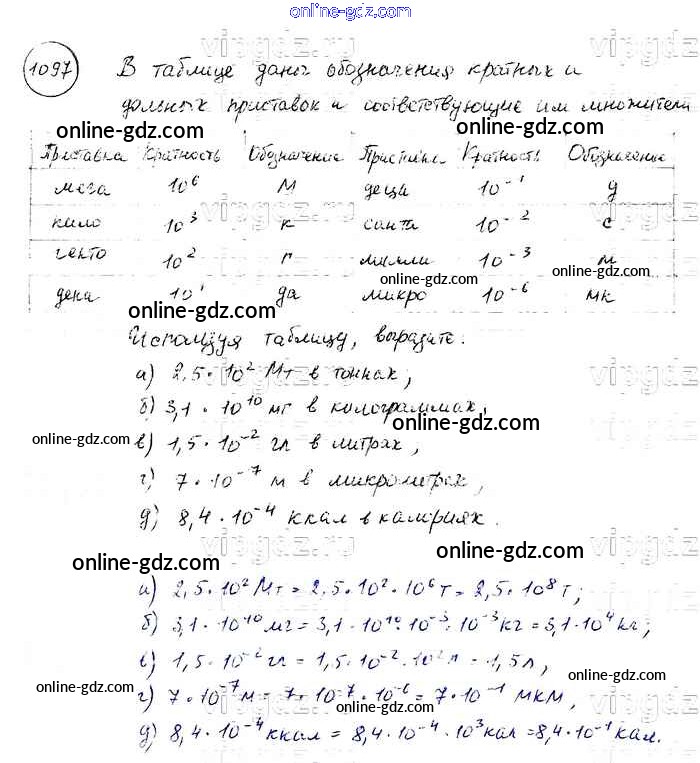 online-gdz.com
1097 В таблице даны обозначения кратных и
дольных приставок и соответствующие им множители
online-gdz.com online-gdz.com
Приставка Кратность Обозначение Приставка Кратность Обозначение
мега 10⁶ М деци 10⁻¹ д
кило 10³ к санти 10⁻² с
гекто 10² г милли 10⁻³ м
online-gdz.com online-gdz.com
дека 10¹ да микро 10⁻⁶ мк
online-gdz.com
Используя таблицу, выразите:
а) 2,5·10² Мт в тоннах;
б) 3,1·10¹⁰ мг в колограммах,
online-gdz.com
online-gdz.com
в) 1,5·10⁻² гл в литрах,
г) 7·10⁻⁷ м в микрометрах,
д) 8,4·10⁻⁴ ккал в калориях.
online-gdz.com
online-gdz.com
а) 2,5·10² Мт = 2,5·10²·10⁶ т = 2,5·10⁸ т;
б) 3,1·10¹⁰ мг = 3,1·10¹⁰·10⁻³·10⁻³ кг = 3,1·10⁴ кг;
в) 1,5·10⁻² гл = 1,5·10⁻²·10² л = 1,5 л,
online-gdz.com online-gdz.com
г) 7·10⁻⁷ м = 7·10⁻⁷·10⁻⁶ = 7·10⁻¹ мкм,
online-gdz.com
д) 8,4·10⁻⁴ ккал = 8,4·10⁻⁴·10³ кал = 8,4·10⁻¹ кал.
online-gdz.com